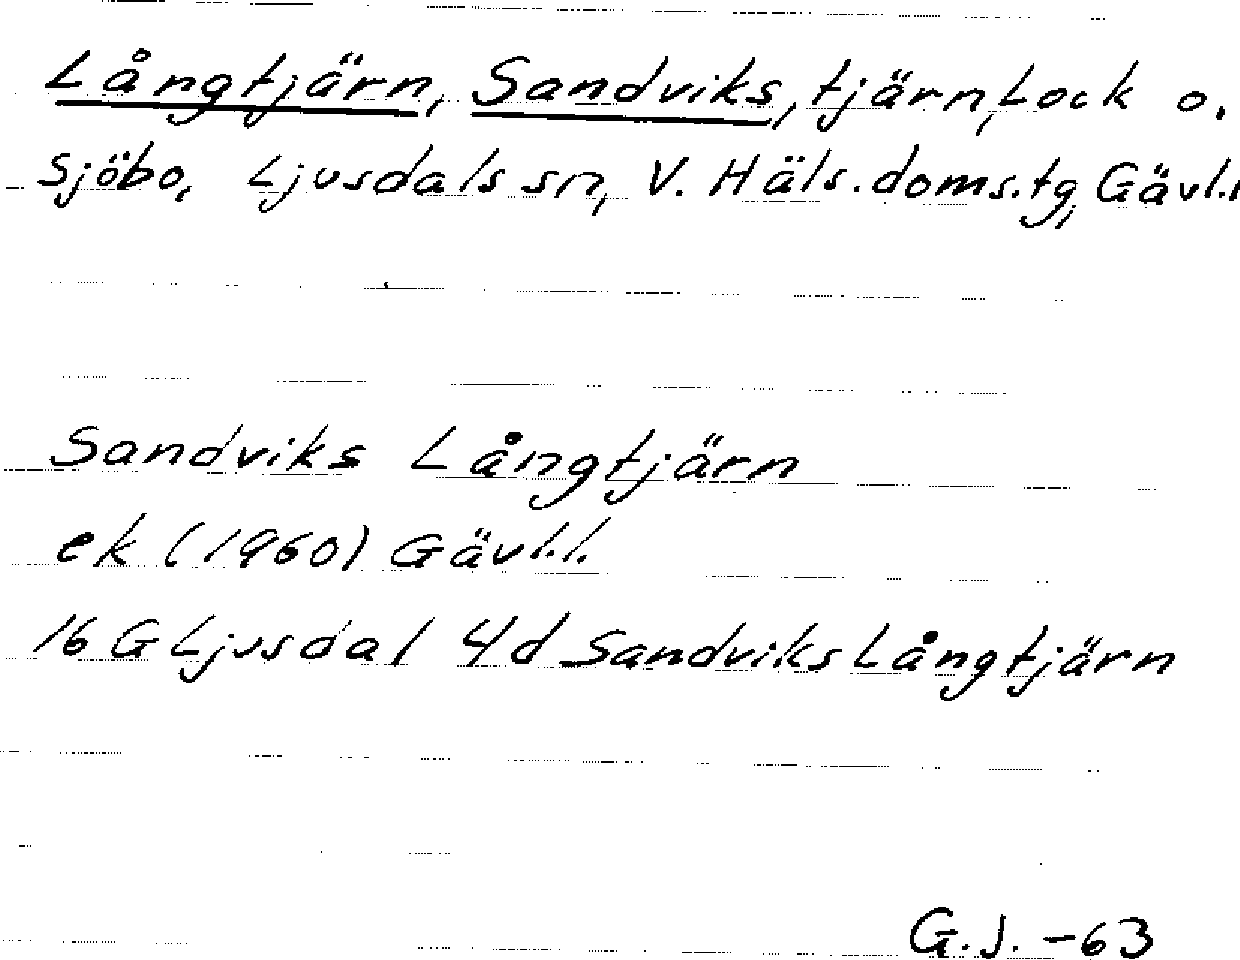 Långtjärn, Sandviks, tjärn, Lock o.
Sjöbo, Ljusdals sn, V. Häls. doms.tg, Gävl.l
Sandviks Långtjärn
ek (1960) Gävl.l.
16 G Ljusdal 4d Sandviks Långtjärn
G.J. -63